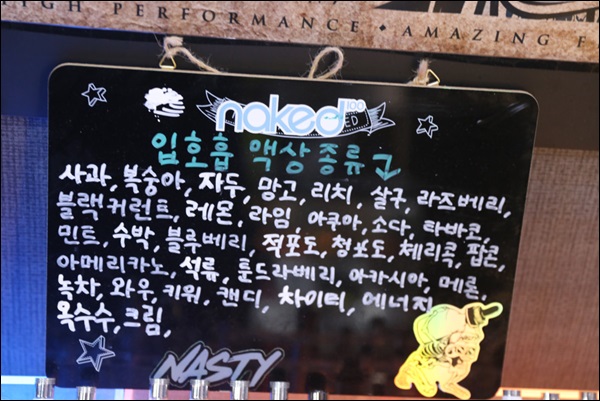 HIGH PERFORMANCE • AMAZING F
naked 100
입호흡 액상 종류
사과, 복숭아, 자두, 망고, 리치, 살구, 라즈베리,
블랙커런트, 레몬, 라임, 아쿠아, 소다, 타바코,
민트, 수박, 블루베리, 적포도, 청포도, 체리콕, 팝콘,
아메리카노, 석류, 툰드라베리, 아카시아, 메론,
녹차, 와우, 키위, 캔디, 차이티, 에너지
옥수수, 크림,
NASTY